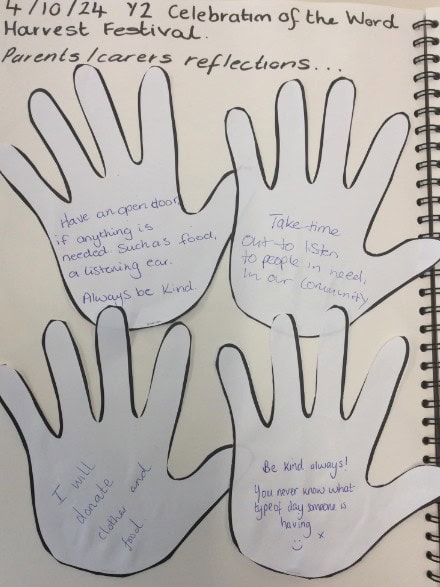 4/10/24 Y2 Celebration of the Word
Harvest Festival.
Parents/carers reflections...
Have an open door
if anything is
needed such as food,
a listening ear.
Always be kind.
Take time
out to listen
to people in need,
in our community
I will
donate
clothes and
food
Be kind always!
You never know what
type of day someone is
having
x